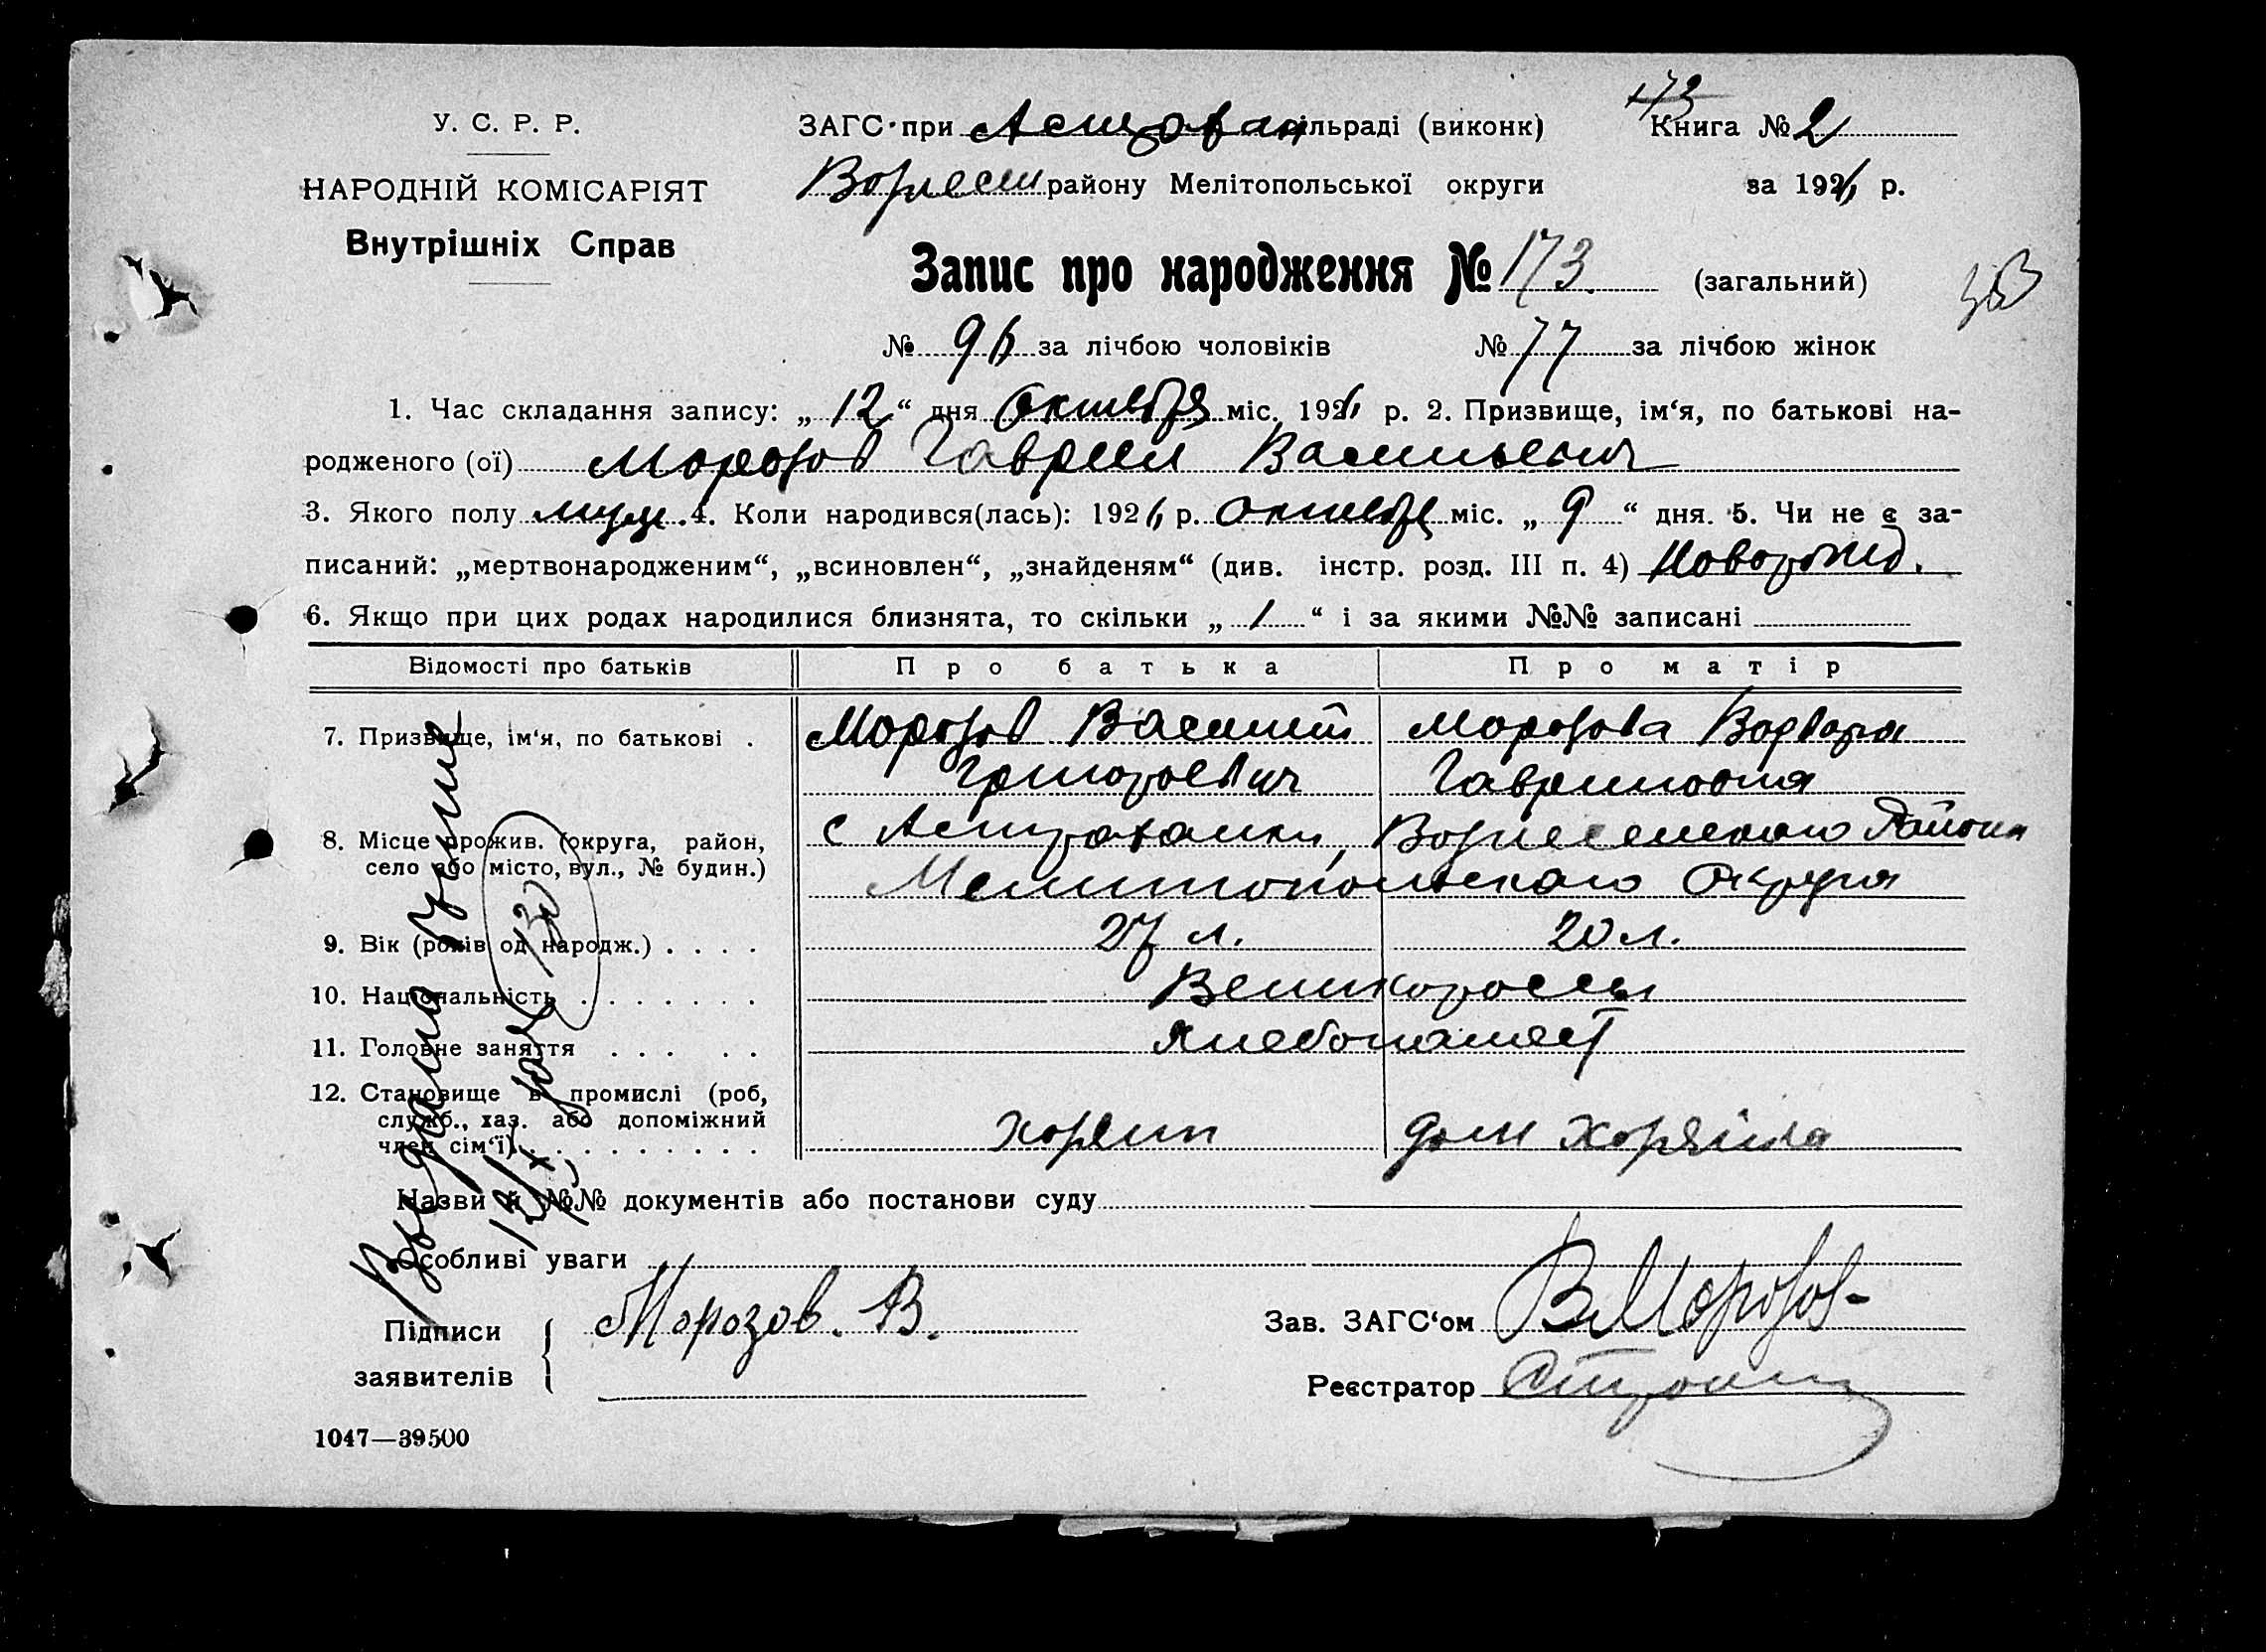 173
У. С. Р. Р.
ЗАГС при Астрахан сільраді (виконк)
Книга № 2
НАРОДНІЙ КОМІСАРІЯТ
Вознесен району Мелітопольської округи
за 192 р.
Внутрішніх Справ
Запис про народження № 173. (загальний)
№ 96 за лічбою чоловіків № 77 за лічбою жінок
1. Час складання запису: „ 12 “ дня Октября міс. 192 р. 2. Призвище, ім‘я, по батькові на-
родженого (ої) Морозов Гавриил Васильевич
3. Якого полу муж. 4. Коли народився(лась): 192 р. Октября міс. „ 9 “ дня. 5. Чи не є за-
писаний: „мертвонародженим“, „всиновлен“, „знайденям“ (див. інстр. розд. III п. 4)Новорожд.
6. Якщо при цих родах народилися близнята, то скільки „ 1 “ і за якими №№ записані
Відомості про батьків Про батька Про матір
7. Призвище, ім‘я, по батькові . Морозов Василий Морозова Варвара
Григорьевич Гавриловна
8. Місце прожив. (округа, район, с Астраханки, Вознесенского Района
село або місто, вул., № будин.) Мелитопольского Округа
9. Вік (років од народж.) . . . . 27 л. 20 л.
10. Національність . . . . . . . Великороссы
11. Головне заняття . . . . . Хлебопашест
12. Становище в промислі (роб,
служб., хаз. або допоміжний
член сім‘ї) . . . . . . . . . . хозяин дом хозяйка
Назви й №№ документів або постанови суду
Особливі уваги
Выдана
Підписи Морозов. В. Зав. ЗАГС‘ом В Морозов
заявителів Реєстратор
1047—39500